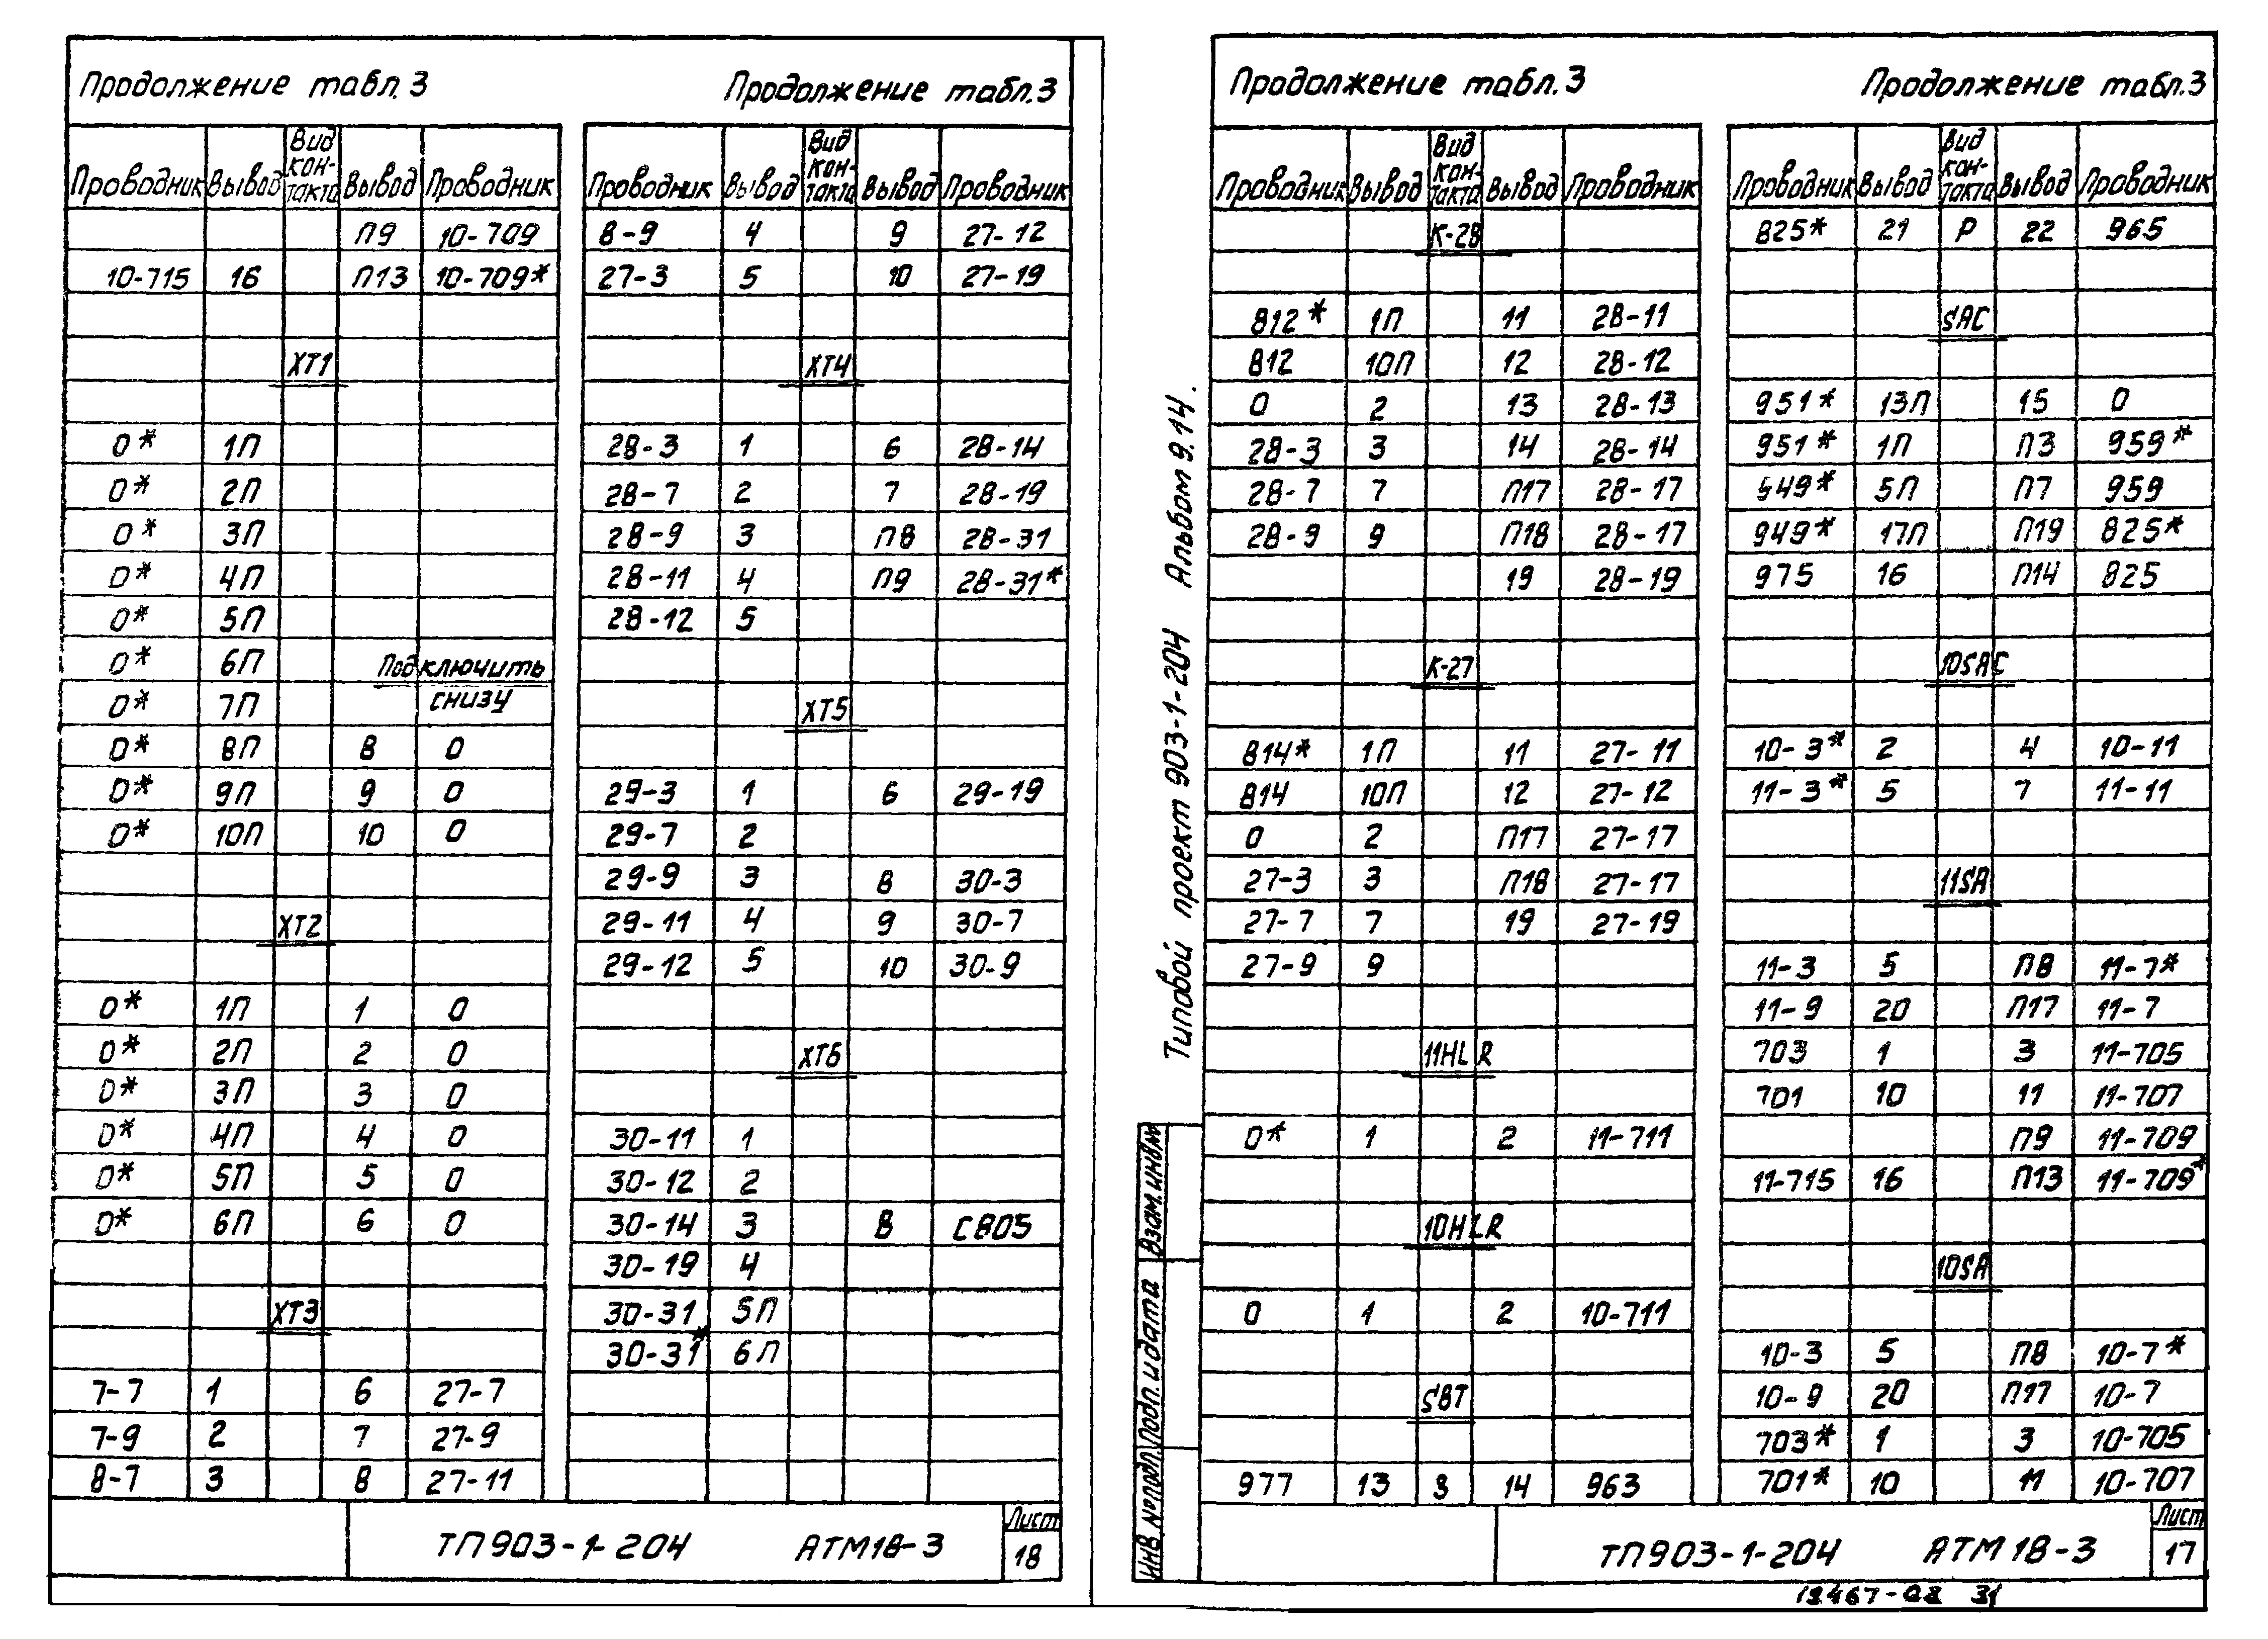 Продолжение табл.3
Проводник Вывод Вид кон-такта Вывод Проводник
П9 10-709
10-715 16 П13 10-709*
ХТ1
0* 1П
0* 2П
0* 3П
0* 4П
0* 5П
0* 6П Подключить
0* 7П снизу
0* 8П 8 0
0* 9П 9 0
0* 10П 10 0
ХТ2
0* 1П 1 0
0* 2П 2 0
0* 3П 3 0
0* 4П 4 0
0* 5П 5 0
0* 6П 6 0
ХТ3
7-7 1 6 27-7
7-9 2 7 27-9
8-7 3 8 27-11
Продолжение табл.3
Проводник Вывод Вид кон-такта Вывод Проводник
8-9 4 9 27-12
27-3 5 10 27-19
ХТ4
28-3 1 6 28-14
28-7 2 7 28-19
28-9 3 П8 28-31
28-11 4 П9 28-31*
28-12 5
ХТ5
29-3 1 6 29-19
29-7 2
29-9 3 8 30-3
29-11 4 9 30-7
29-12 5 10 30-9
ХТ6
30-11 1
30-12 2
30-14 3 8 С805
30-19 4
30-31 5П
30-31* 6П
ТП903-1-204 АТМ18-3
Лист
18
Типовой проект 903-1-204 Альбом 9.14.
Взам.инв.№
Подп. и дата
Инв. № подл.
Продолжение табл.3
Проводник Вывод Вид кон-такта Вывод Проводник
К-28
812* 1П 11 28-11
812 10П 12 28-12
0 2 13 28-13
28-3 3 14 28-14
28-7 7 П17 28-17
28-9 9 П18 28-17
19 28-19
К-27
814* 1П 11 27-11
814 10П 12 27-12
0 2 П17 27-17
27-3 3 П18 27-17
27-7 7 19 27-19
27-9 9
11HLR
0* 1 2 11-711
10HLR
0 1 2 10-711
SBT
977 13 З 14 963
Продолжение табл.3
Проводник Вывод Вид кон-такта Вывод Проводник
825* 21 Р 22 965
SAC
951* 13П 15 0
951* 1П П3 959*
949* 5П П7 959
949* 17П П19 825*
975 16 П14 825
10SAC
10-3* 2 4 10-11
11-3* 5 7 11-11
11SA
11-3 5 П8 11-7*
11-9 20 П17 11-7
703 1 3 11-705
701 10 11 11-707
П9 11-709
11-715 16 П13 11-709*
10SA
10-3 5 П8 10-7*
10-9 20 П17 10-7
703* 1 3 10-705
701* 10 11 10-707
ТП903-1-204 АТМ18-3
Лист
17
31